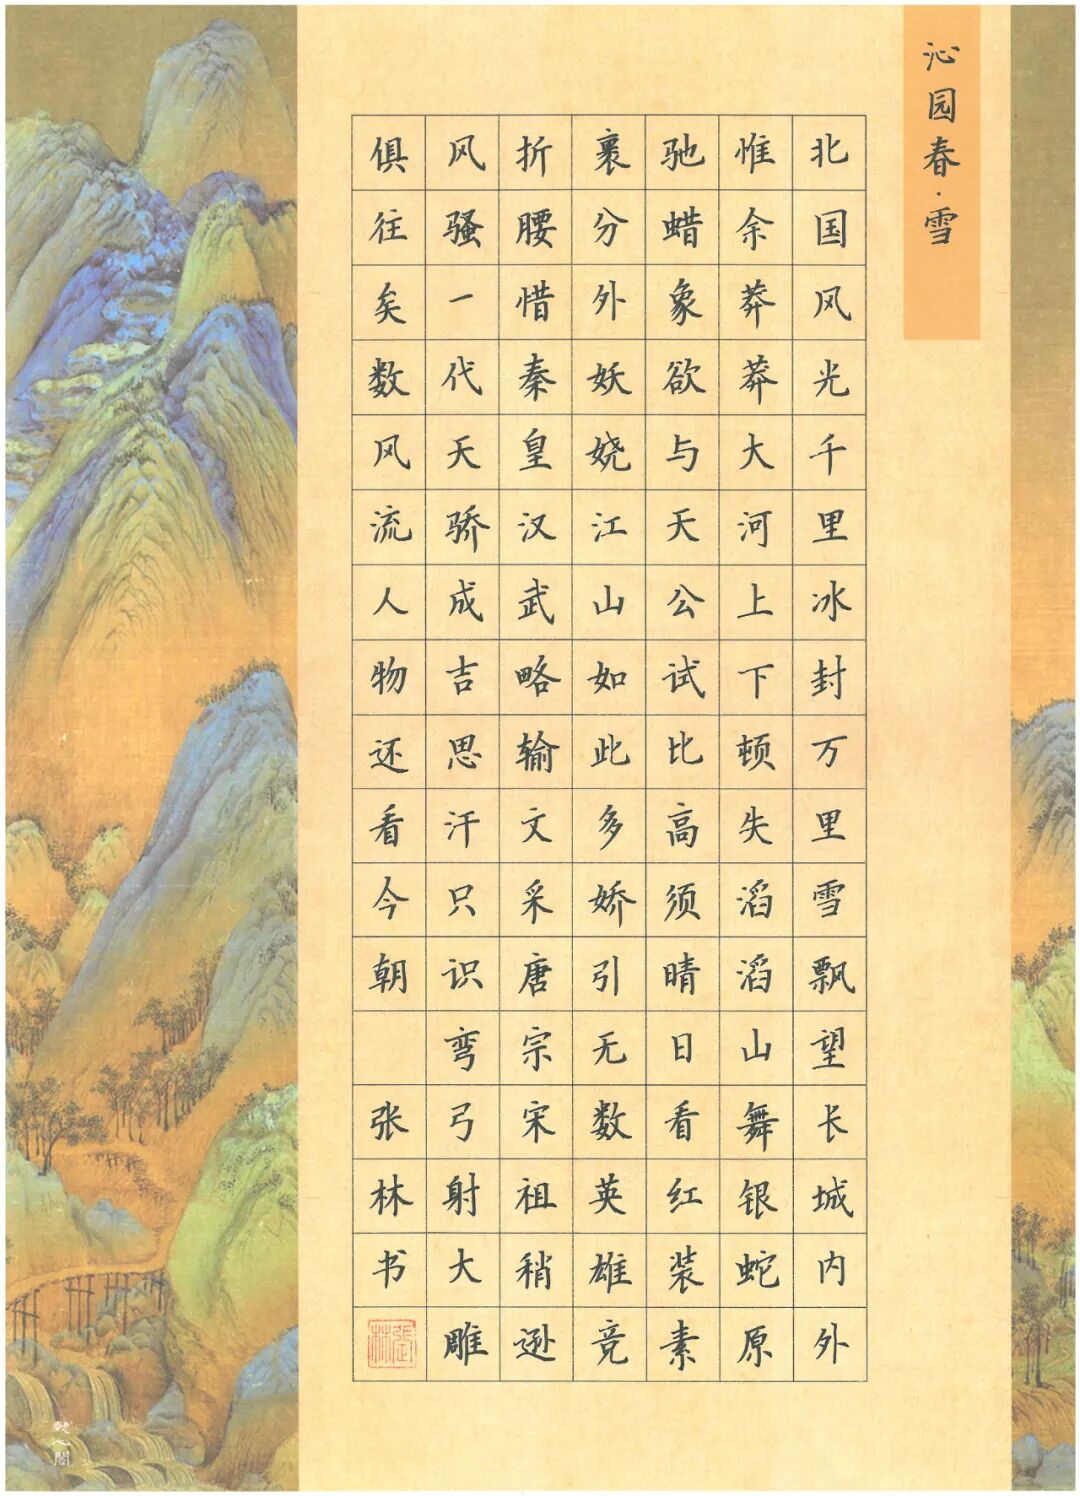 沁园春·雪
北国风光千里冰封万里雪飘望长城内外
惟余莽莽大河上下顿失滔滔山舞银蛇原
驰蜡象欲与天公试比高须晴日看红装素
裹分外妖娆江山如此多娇引无数英雄竞
折腰惜秦皇汉武略输文采唐宗宋祖稍逊
风骚一代天骄成吉思汗只识弯弓射大雕
俱往矣数风流人物还看今朝 张林书
张林